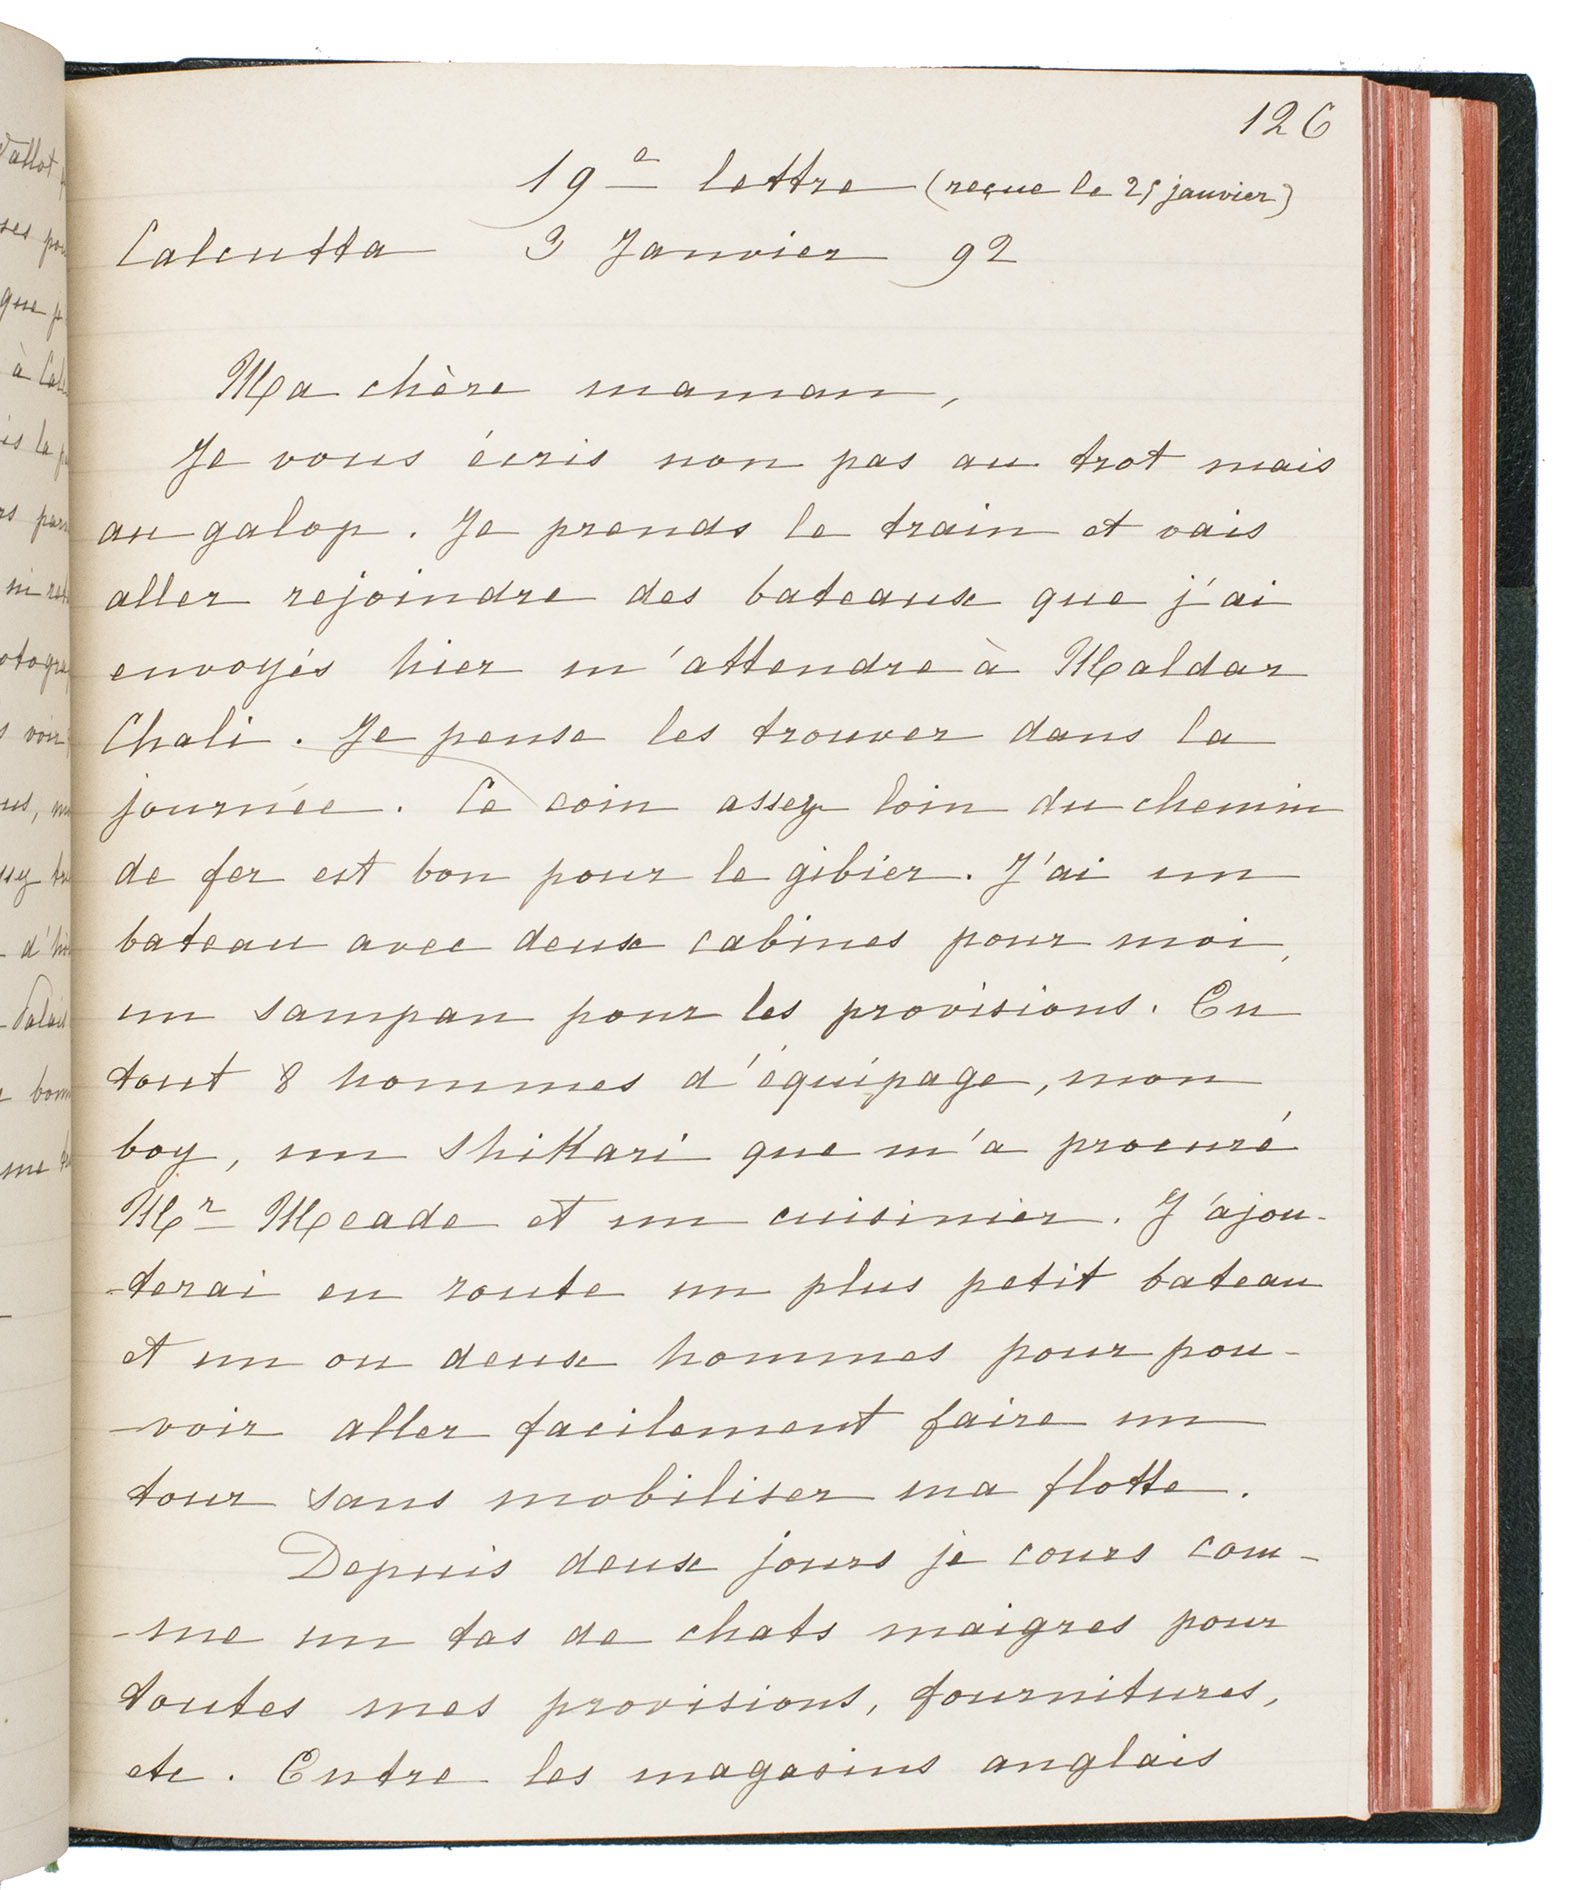 126
19e lettre (reçue le 25 janvier)
Calcutta 3 Janvier 92
Ma chère maman,
Je vous écris non pas au trot mais
au galop. Je prends le train et vais
aller rejoindre des bateaux que j'ai
envoyés hier m'attendre à Maldar
Chali. Je pense les trouver dans la
journée. Ce coin assez loin du chemin
de fer est bon pour le gibier. J'ai un
bateau avec deux cabines pour moi,
un sampan pour les provisions. En
tout 8 hommes d'équipage, mon
boy, un shikari que m'a procuré
Mr Meade et un cuisinier. J'ajou-
-terai en route un plus petit bateau
et un ou deux hommes pour pou-
-voir aller facilement faire un
tour sans mobiliser ma flotte.
Depuis deux jours je cours com-
-me un tas de chats maigres pour
toutes mes provisions, fournitures,
etc. Entre les magasins anglais